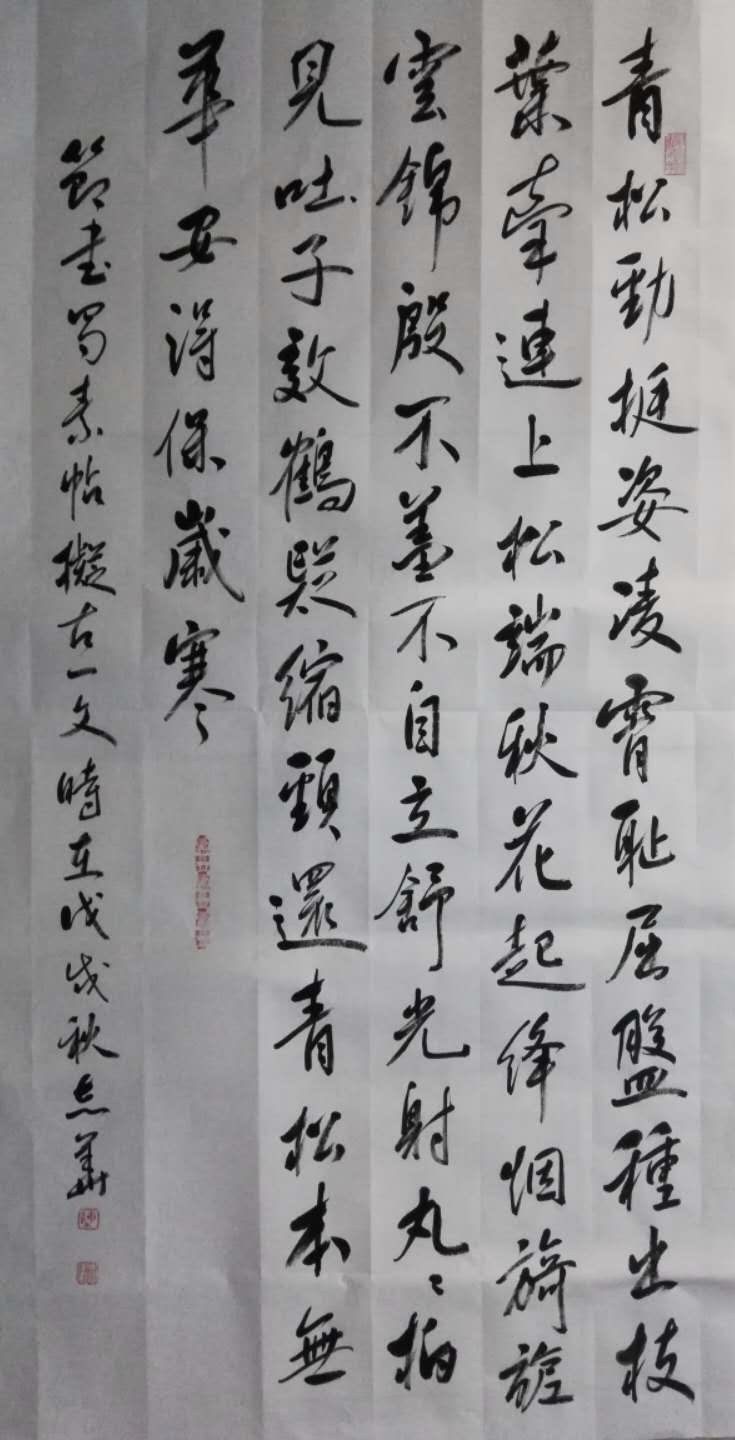 青松勁挺姿凌霄恥屈盤種出枝
葉牽連上松端秋花起絳烟旖旎
雲錦殷不羞不自立舒光射丸〻柏
見吐子效鶴疑縮頸還青松本無
華安得保歲寒
節書蜀素帖擬古一文時在戊戌秋志華